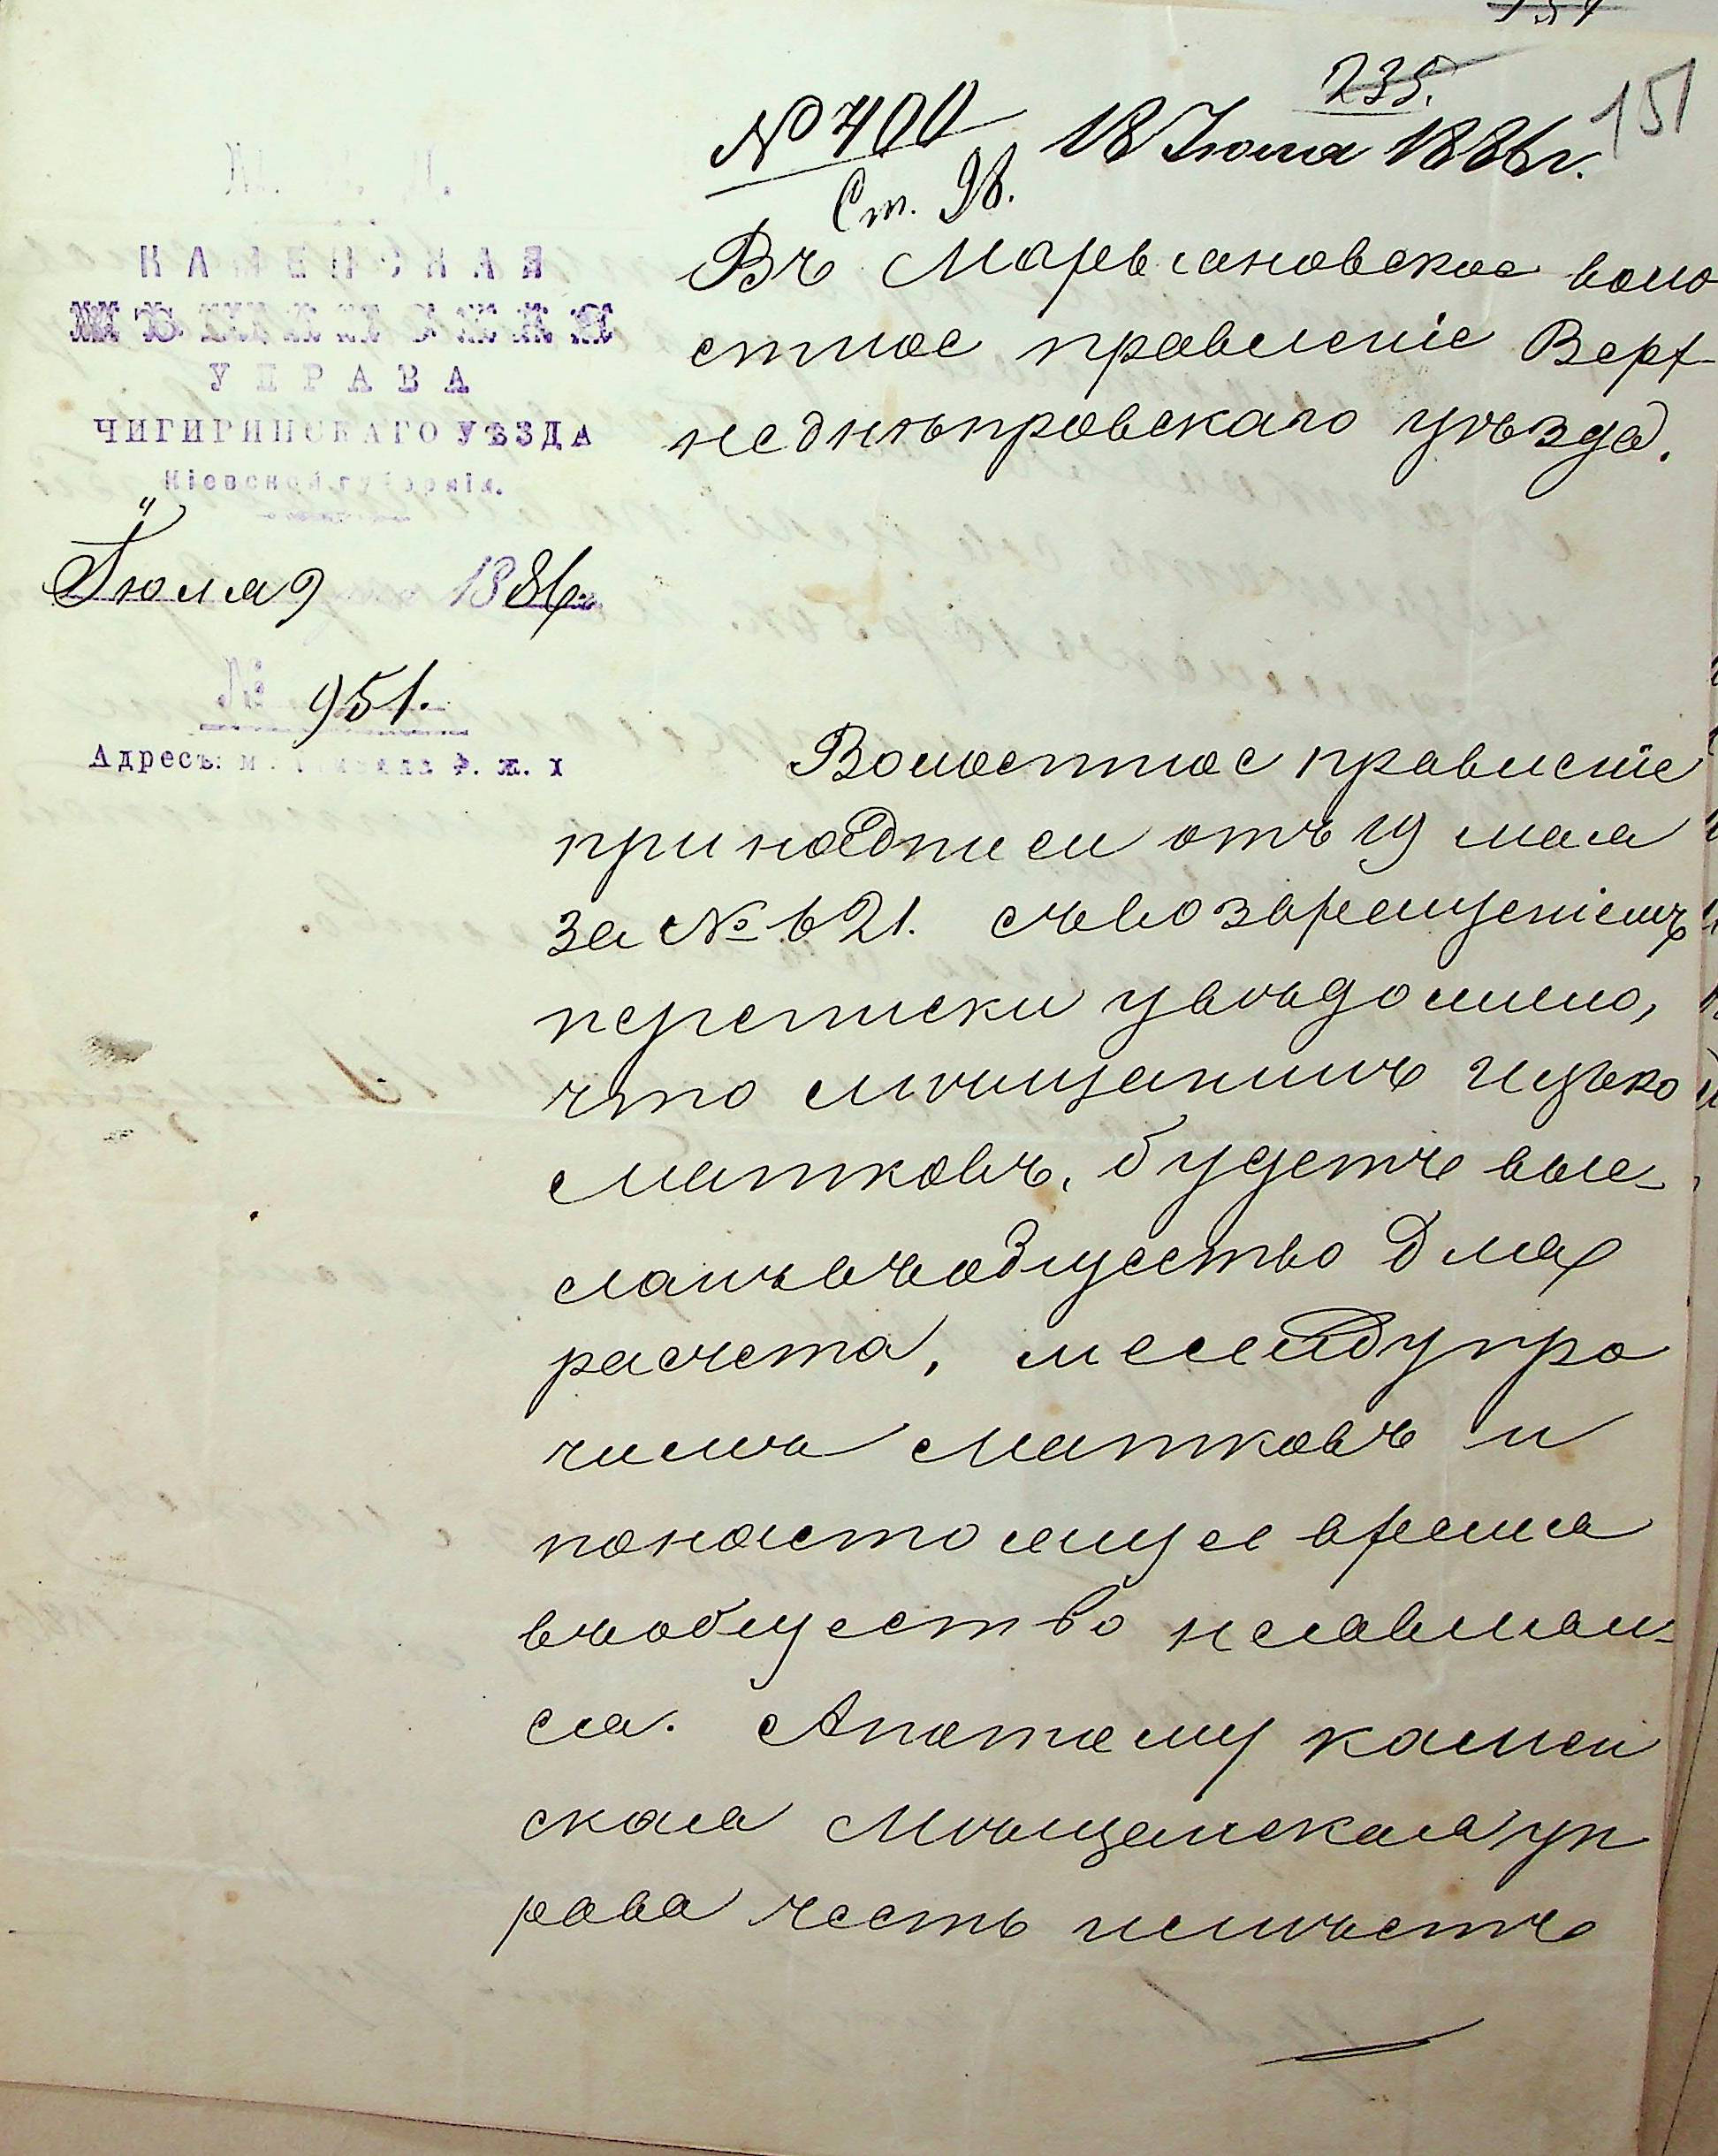 235.
151
№ 400 18 Іюля 1886 г.
Ст. 98.
М. В. Д.
КАМЕНСКАЯ
МѢЩАНСКАЯ
УПРАВА
ЧИГИРИНСКАГО УѢЗДА
Кіевской губерніи.
Іюля 9 1886 г.
№ 951.
Адресъ: м. Ф. ж. д
Въ Марьяновское воло
стное правленіе Верх-
неднѣпровскаго уѣзда.
Волостное правленіе
при надписи отъ 19 мая
за № 621. съвозвращеніемъ
переписки увѣдомило,
что мѣщанинъ Ицько
Матковъ, будетъ выс-
ланъ въобщество для
расчета, международпро
чимъ Матковъ и
понастоящее время
въобщество неявлял-
ся. Апотому камен
ская Мѣщанская уп
рава честь имѣетъ